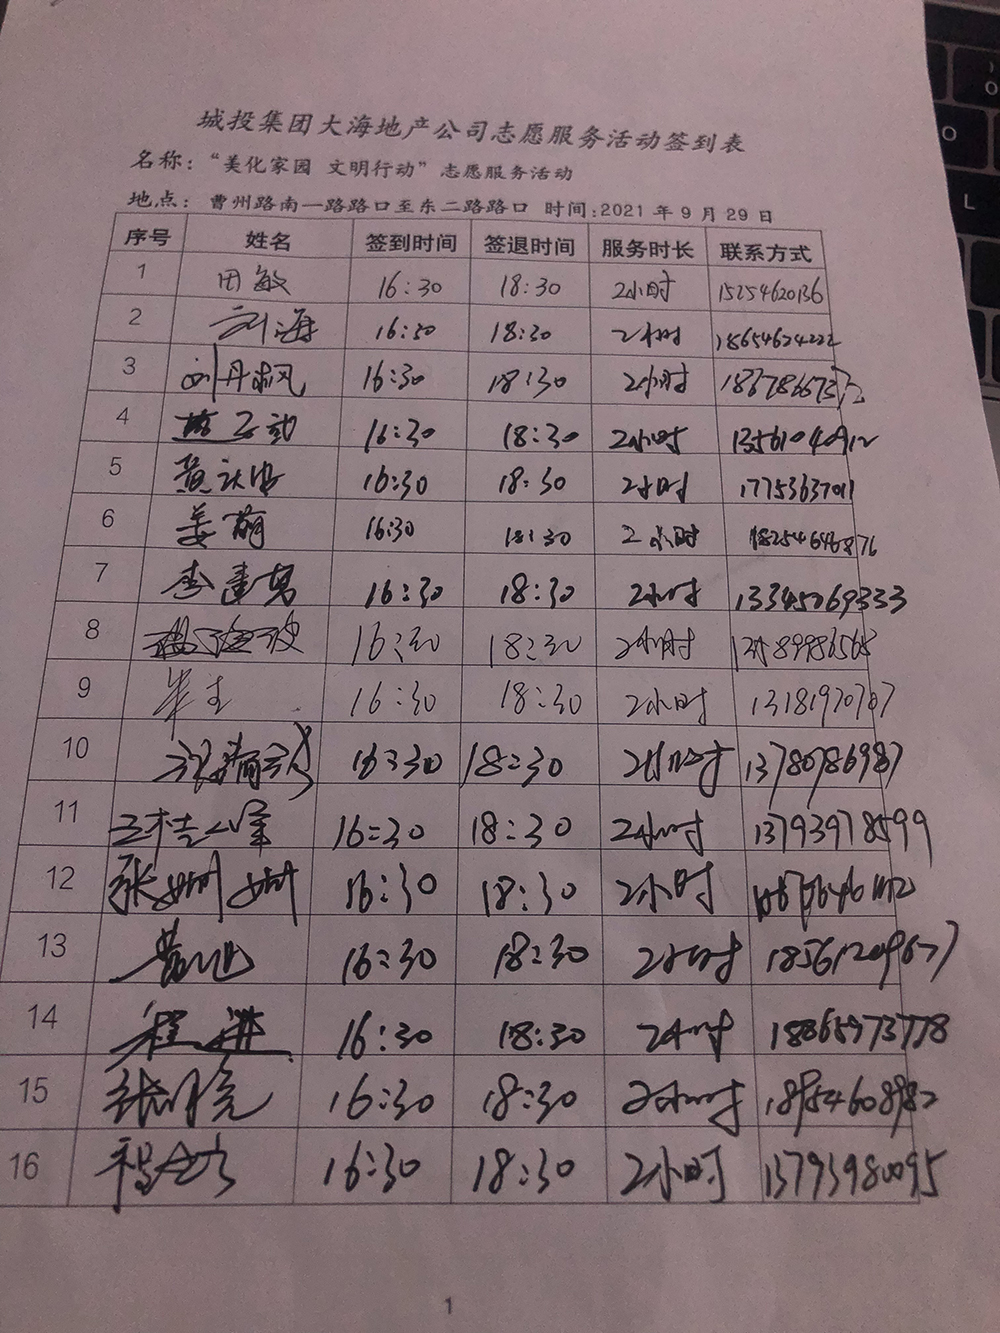 城投集团大海地产公司志愿服务活动签到表
名称：“美化家园 文明行动”志愿服务活动
地点： 曹州路南一路路口至东二路路口 时间:2021 年 9 月 29 日
序号 姓名 签到时间 签退时间 服务时长 联系方式
1 田敏 16:30 18:30 2小时 15254620136
2 刘海 16:30 18:30 2小时 18654624222
3 刘丹枫 16:30 18:30 2小时
4 16:30 18:30 2小时 13561040912
5 16:30 18:30 2小时 17753637011
6 姜萌 16:30 18:30 2小时 18254646876
7 李建勇 16:30 18:30 2小时 13345069333
8 16:30 18:30 2小时
9 16:30 18:30 2小时 13181970787
10 16:30 18:30 2小时 13780786987
11 王桂峰 16:30 18:30 2小时 13793978599
12 张姗姗 16:30 18:30 2小时
13 16:30 18:30 2小时 18561209677
14 程进 16:30 18:30 2小时 18865973778
15 张月亮 16:30 18:30 2小时 18954608982
16 16:30 18:30 2小时 13793980095
1
O
L